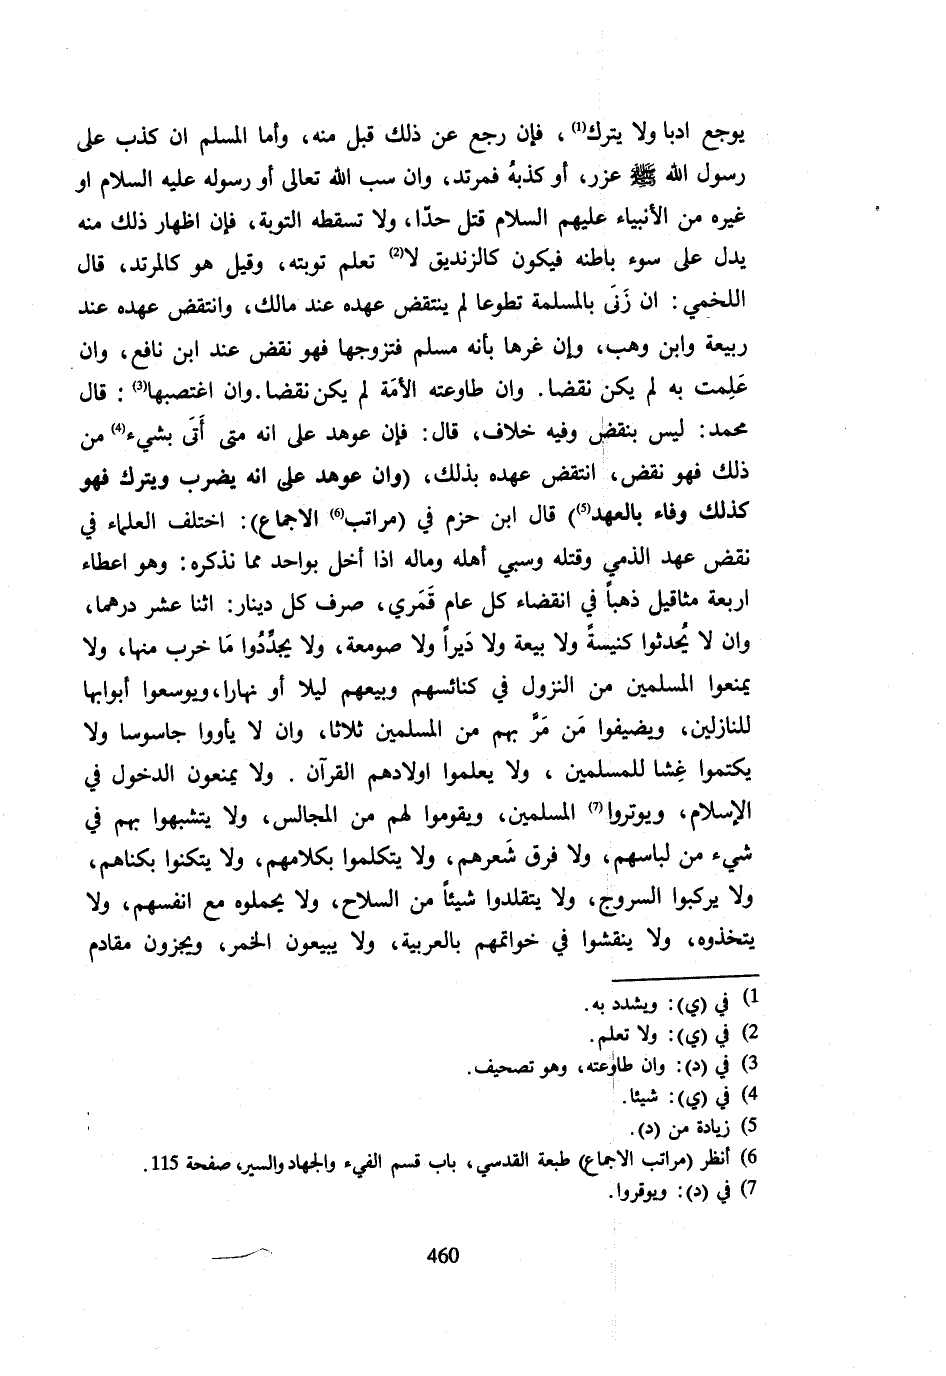 يوجع ادبا ولا يترك(1) ، فإن رجع عن ذلك قبل منه، وأما المسلم ان كذب على
رسول الله ﷺ عزر، أو كذبهُ فمرتد، وان سب الله تعالى أو رسوله عليه السلام او
غيره من الأنبياء عليهم السلام قتل حدّا، ولا تسقطه التوبة، فإن اظهار ذلك منه
يدل على سوء باطنه فيكون كالزنديق لا(2) تعلم توبته، وقيل هو كالمرتد، قال
اللخمي: ان زَنَى بالمسلمة تطوعا لم ينتقض عهده عند مالك، وانتقض عهده عند
ربيعة وابن وهب، وإن غرها بأنه مسلم فتزوجها فهو نقض عند ابن نافع، وان
عَلِمت به لم يكن نقضا. وان طاوعته الأمَة لم يكن نقضا. وان اغتصبها(3) : قال
محمد: ليس بنقض وفيه خلاف، قال: فإن عوهد على انه متى أَتَى بشيء(4) من
ذلك فهو نقض، انتقض عهده بذلك، (وان عوهد على انه يضرب ويترك فهو
كذلك وفاء بالعهد(5)) قال ابن حزم في (مراتب(6) الاجماع): اختلف العلماء في
نقض عهد الذمي وقتله وسبي أهله وماله اذا أخل بواحد مما نذكره: وهو اعطاء
اربعة مثاقيل ذهباً في انقضاء كل عام قَمَري، صرف كل دينار: اثنا عشر درهما،
وان لا يُحدثوا كنيسةً ولا بيعة ولا دَيراً ولا صومعة، ولا يجدِّدُوا مَا خرب منها، ولا
يمنعوا المسلمين من النزول في كنائسهم وبيعهم ليلا أو نهارا، ويوسعوا أبوابها
للنازلين، ويضيفوا مَن مَرَّ بهم من المسلمين ثلاثا، وان لا يأووا جاسوسا ولا
يكتموا غِشا للمسلمين ، ولا يعلموا اولادهم القرآن . ولا يمنعون الدخول في
الإسلام، ويوتروا(7) المسلمين، ويقوموا لهم من المجالس، ولا يتشبهوا بهم في
شيء من لباسهم، ولا فرق شَعرهم، ولا يتكلموا بكلامهم، ولا يتكنوا بكناهم،
ولا يركبوا السروج، ولا يتقلدوا شيئاً من السلاح، ولا يحملوه مع انفسهم، ولا
يتخذوه، ولا ينقشوا في خواتمهم بالعربية، ولا يبيعون الخمر، ويجزون مقادم
1) في (ي): ويشدد به.
2) في (ي): ولا تعلم.
3) في (د): وان طاوعته، وهو تصحيف.
4) في (ي): شيئا.
5) زيادة من (د).
6) أنظر (مراتب الاجماع) طبعة القدسي، باب قسم الفيء والجهاد والسير، صفحة 115.
7) في (د): ويوقروا.
460